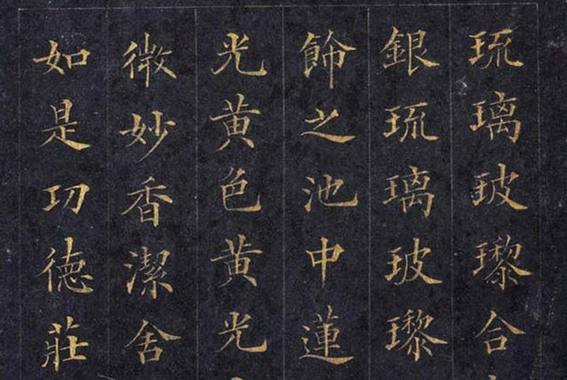 琉璃玻瓈合
銀琉璃玻瓈
飾之池中蓮
光黄色黄光
微妙香潔舍
如是㓛德莊